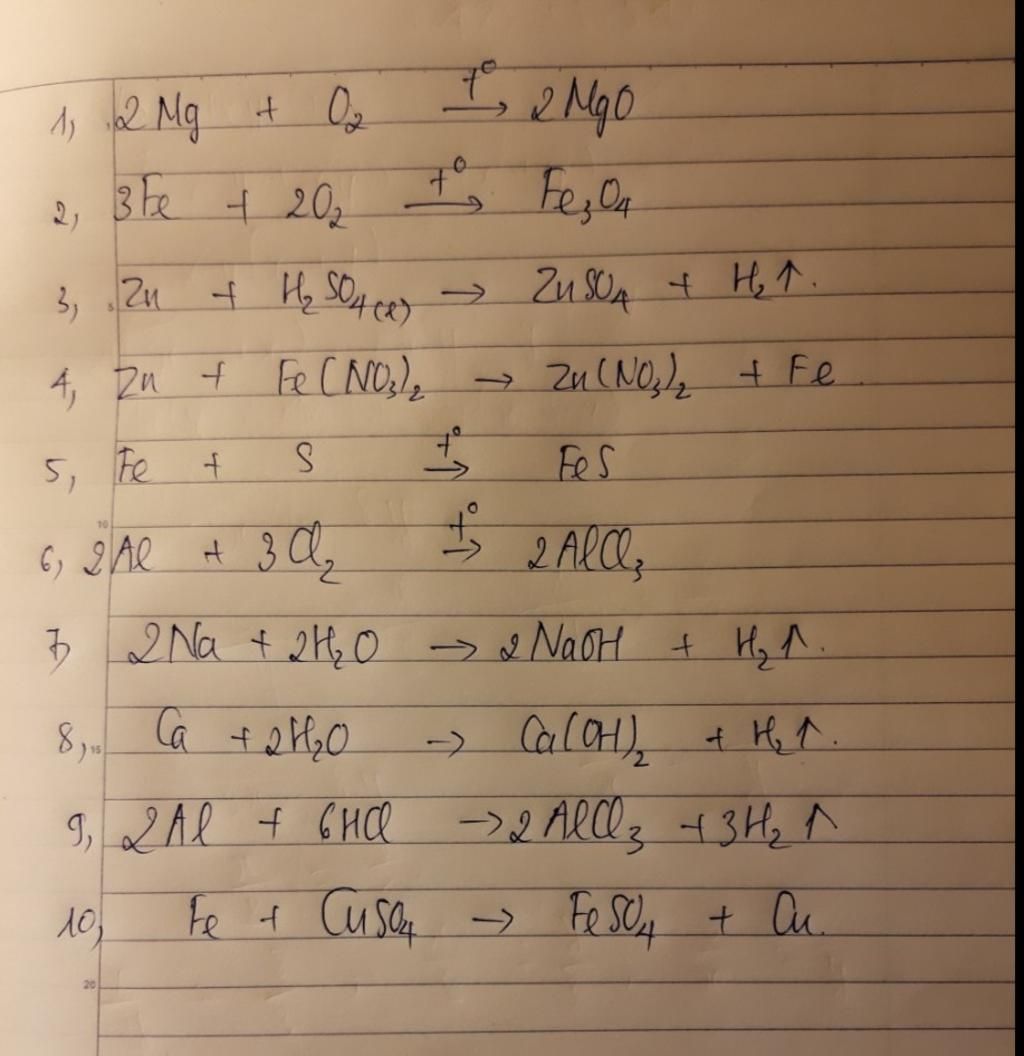 1, 2Mg + O₂ t°→ 2MgO
2, 3Fe + 2O₂ t°→ Fe₃O₄
3, Zn + H₂SO₄(l) → ZnSO₄ + H₂↑.
4, Zn + Fe(NO₃)₂ → Zn(NO₃)₂ + Fe
5, Fe + S t°→ FeS
10
6, 2Al + 3Cl₂ t°→ 2AlCl₃
7, 2Na + 2H₂O → 2NaOH + H₂↑.
8, 15 Ca + 2H₂O → Ca(OH)₂ + H₂↑.
9, 2Al + 6HCl → 2AlCl₃ + 3H₂↑
10, Fe + CuSO₄ → FeSO₄ + Cu.
20